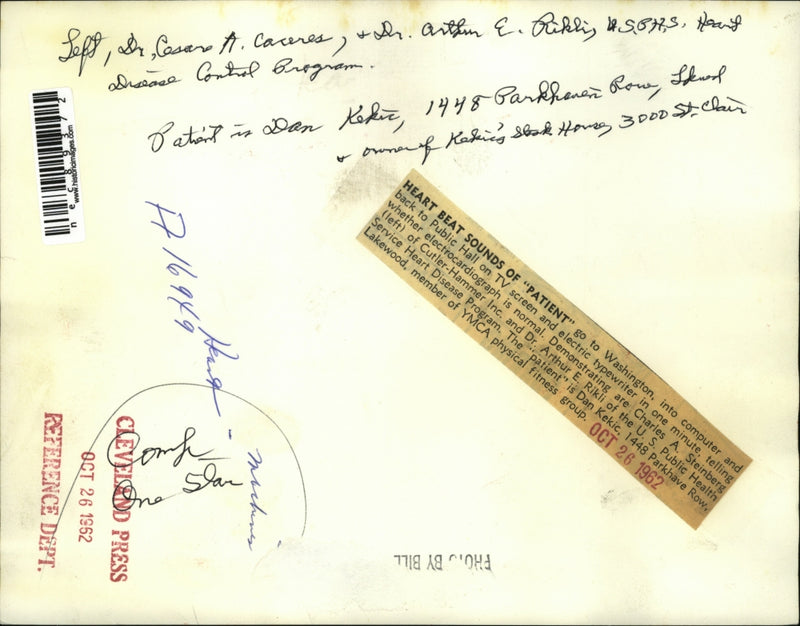 Left, Dr. Cesare A. Caceres, & Dr. Arthur E. Rikli, U.S.P.H.S. Heart
Disease Control Program.
Patient is Dan Kekic, 1448 Parkhaven Row, Lkwd
& owner of Kekic's Steak House, 3000 St. Clair
neC89372
www.historicimages.com
HEART BEAT SOUNDS OF "PATIENT" go to Washington, into computer and
back to Public Hall on TV screen and electric typewriter in one minute, telling
whether electrocardiograph is normal. Demonstrating are Charles A. Steinberg
(left) of Cutler-Hammer Inc. and Dr. Arthur E. Rikli of the U S. Public Health
Service Heart Disease Program. The "patient" is Dan Kekic, 1448 Parkhave Row,
Lakewood, member of YMCA physical fitness group.
OCT 26 1962
16949
Heart - Machines
One Star
CLEVELAND PRESS
OCT 26 1962
REFERENCE DEPT.
PHOTO BY BILL